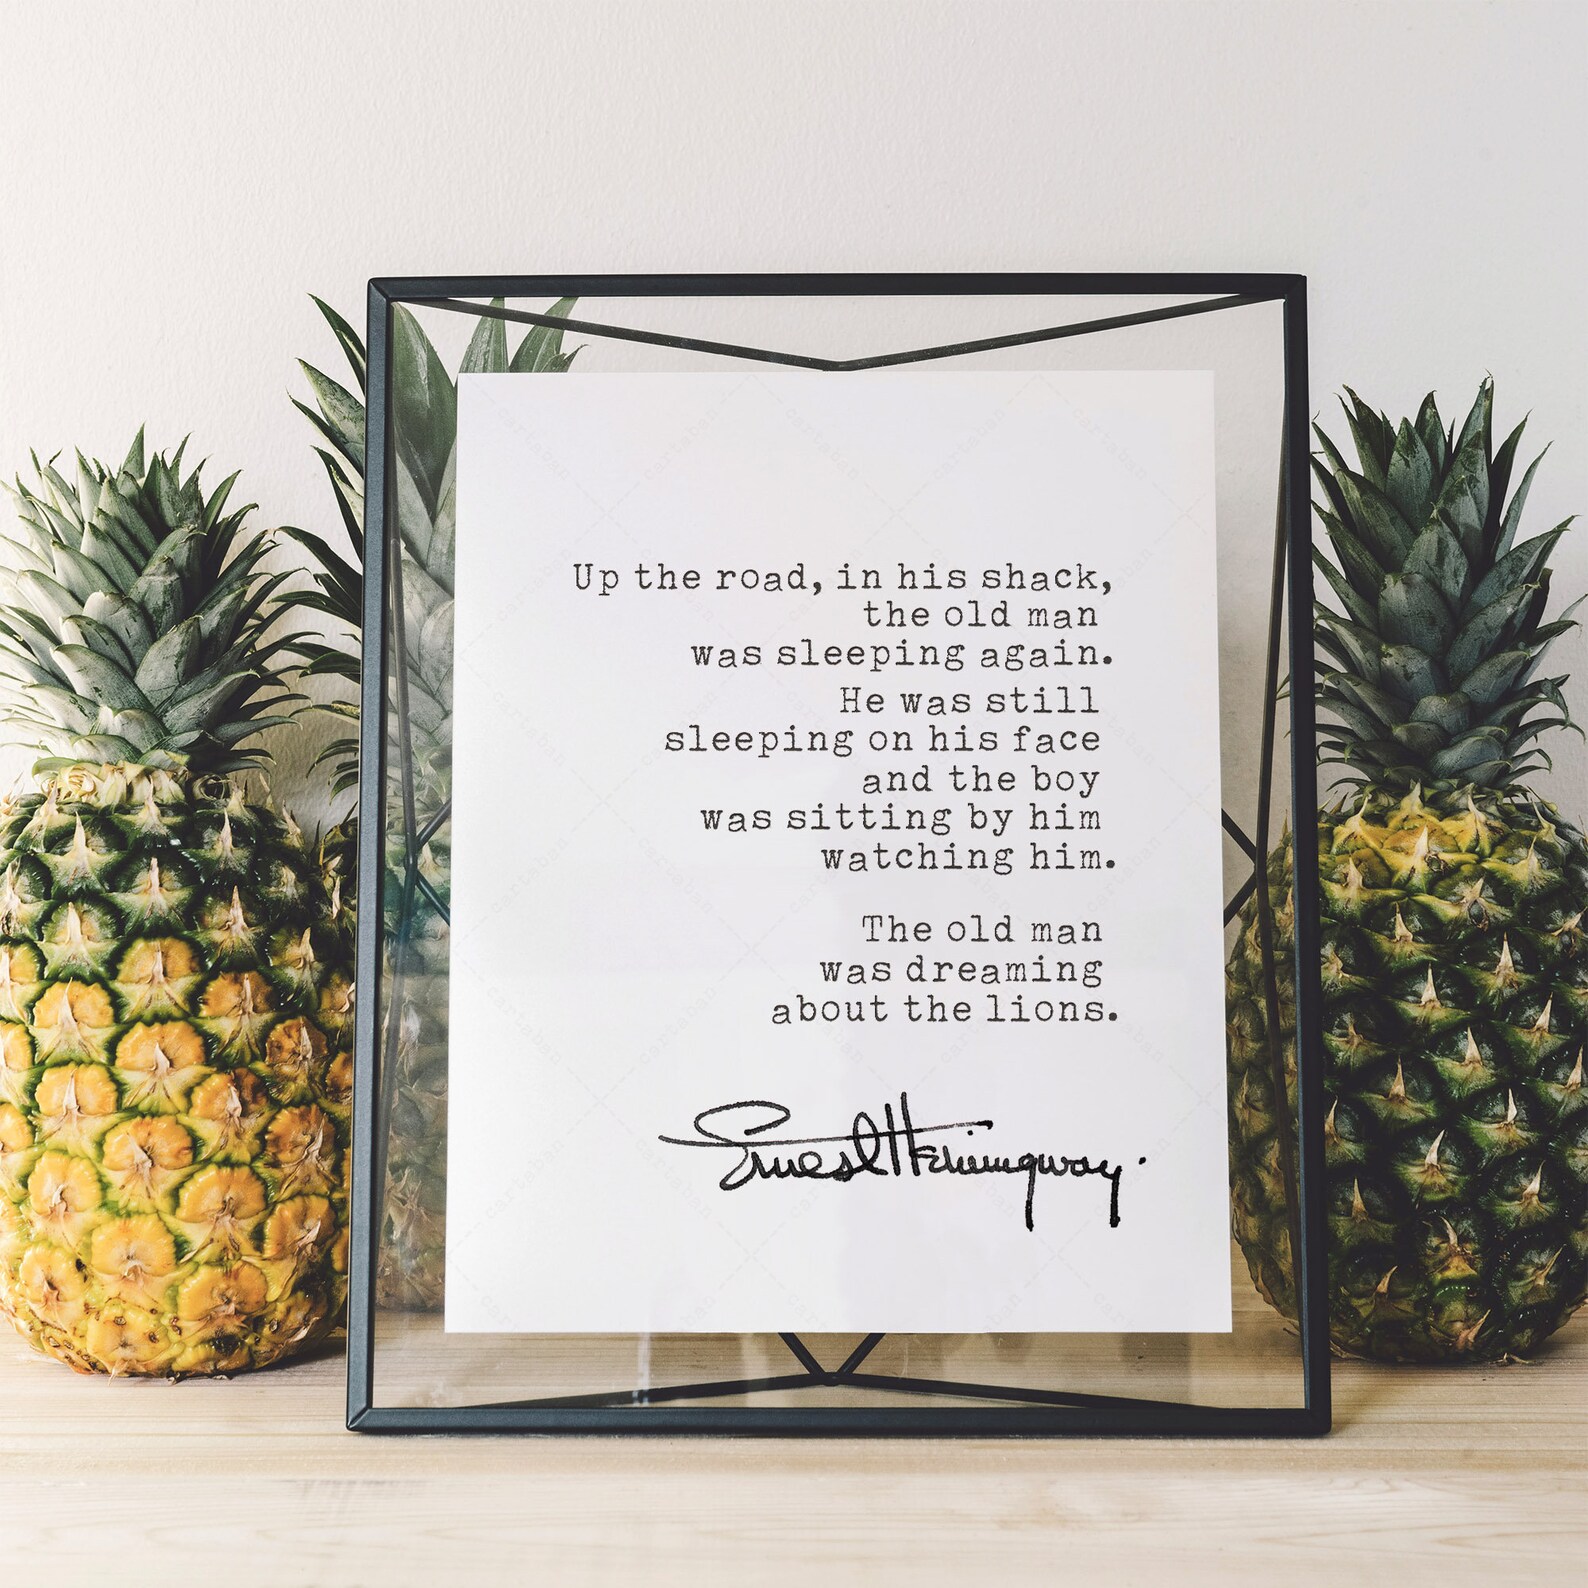 Up the road, in his shack,
the old man
was sleeping again.
He was still
sleeping on his face
and the boy
was sitting by him
watching him.
The old man
was dreaming
about the lions.
Ernest Hemingway.